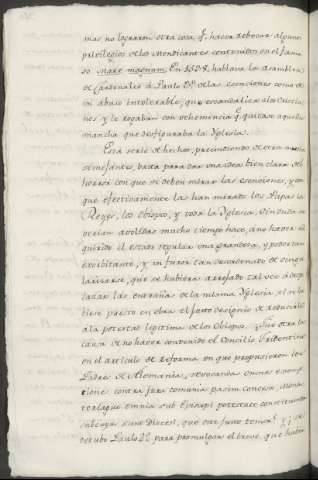 mas no lograron otra cosa q.e hacer derogar algunos
privilegios de los Mendicantes contenidos en el famo
so Mare magnum. En 1538, hablava la asamblea
de Cardenales à Paulo 3.º de las esenciones como de
un abuso intolerable, que escandaliza a los Cristia
nos y le rogaban con vehemencia q.e quitase aquella
mancha que desfiguraba la Yglesia.
Esta serie de hechos, prescindiendo de otros muchos
semejantes, basta para dar una idea bien clara del
horror con que se deben mirar las esenciones, y con
que efectivamente las han mirado los Papas los
Reyes, los Obispos, y toda la Yglesia. Sin duda se
verian abolidas mucho tiempo hace, à no haver ad
quirido el estado regular una grandeza, y poder tan
exorbitante, y un furor tan desordenado de vengar
larisarse, que se hubiera arrojado tal vez à despe
dazar las entrañas de la misma Yglesia, si se hu
biese puesto en obra el justo designio de reducirlo
à la potestad legitima de los Obispos. Fue otra la
causa de no haver convenido el Concilio Tridentino
en el articulo de reforma en que propusieron los
Padres de Alemania, revocandas omnes exemp
tiones contra jura comunia pasim concesas, Mona
teriaque omnia sub Episcopi potestate constituenda
sub cujus sunt Diocesi, que
octubre Paulo 3.º para promulgar el breve, que hubo